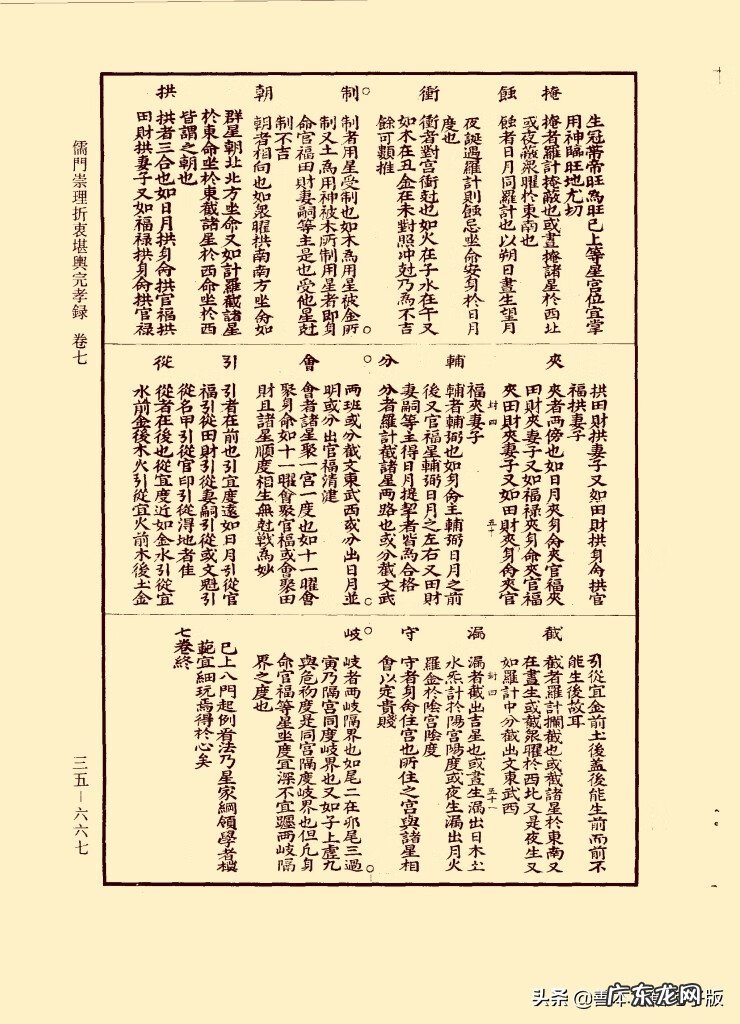 生冠帶帝旺為旺已上等星宮位宜掌
用神臨旺地尤切
掩
掩者羅計掩蔽也或晝掩諸星於西北
或夜蔽衆曜於東南也
蝕
蝕者日月同羅計也以朔日晝生望月
夜誕遇羅計則蝕忌坐命安身於日月
度也
衝
衝者對宮衝尅也如火在子水在午又
如木在丑金在未對照冲尅乃為不吉
餘可類推
制
制者用星受制也如木為用星被金所
制又土為用神被木所制用星者即身
命官福田財妻嗣等主是也受他星尅
制不吉
朝
朝者相向也如衆曜拱南南方坐命如
群星朝北北方坐命又如計羅截諸星
於東命坐於東截諸星於西命坐於西
皆謂之朝也
拱
拱者三合也如日月拱身命拱官福拱
田財拱妻子又如福禄拱身命拱官禄
拱田財拱妻子又如田財拱身命拱官
福拱妻子
夾
夾者兩傍也如日月夾身命夾官福夾
田財夾妻子又如福禄夾身命夾官福
夾田財夾妻子又如田財夾身命夾官
福夾妻子
輔
輔者輔弼也如身命主輔弼日月之前
後又官福星輔弼日月之左右又田財
妻嗣等主得日月提挈者皆為合格
分
分者羅計截諸星兩路也或分截文武
兩班或分截文東武西或分出日月並
明或分出官福清健
會
會者諸星聚一宮一度也如十一曜會
聚身命如十一曜會聚官福或會聚田
財且諸星順度相生無尅戰為妙
引
引者在前也引宜度遠如日月引從官
福引從田財引從妻嗣引從或文魁引
從名甲引從官印引從得地者佳
從
從者在後也從宜度近如金水引從宜
水前金後木火引從宜火前木後土金
引從宜金前土後蓋後能生前而前不
能生後故耳
截
截者羅計攔截也或截諸星於東南又
在晝生或截衆曜於西北又是夜生又
如羅計中分截出文東武西
漏
漏者截出吉星也或晝生漏出日木土
水炁計於陽宮陽度或夜生漏出月火
羅金於陰宮陰度
守
守者身命住宮也所住之宮與諸星相
會以定貴賤
岐
岐者兩岐隔界也如尾二在卯尾三過
寅乃隔宮同度岐界也又如子上虛九
與危初度是同宮隔度岐界也但凡身
命官福等星坐度宜深不宜躔兩岐隔
界之度也
已上八門起例看法乃星家綱領學者模
範宜細玩焉得於心矣
七卷終
儒門崇理折衷堪輿完孝録 卷七
三五—六六七
頭条 @善本
版
广东龙网